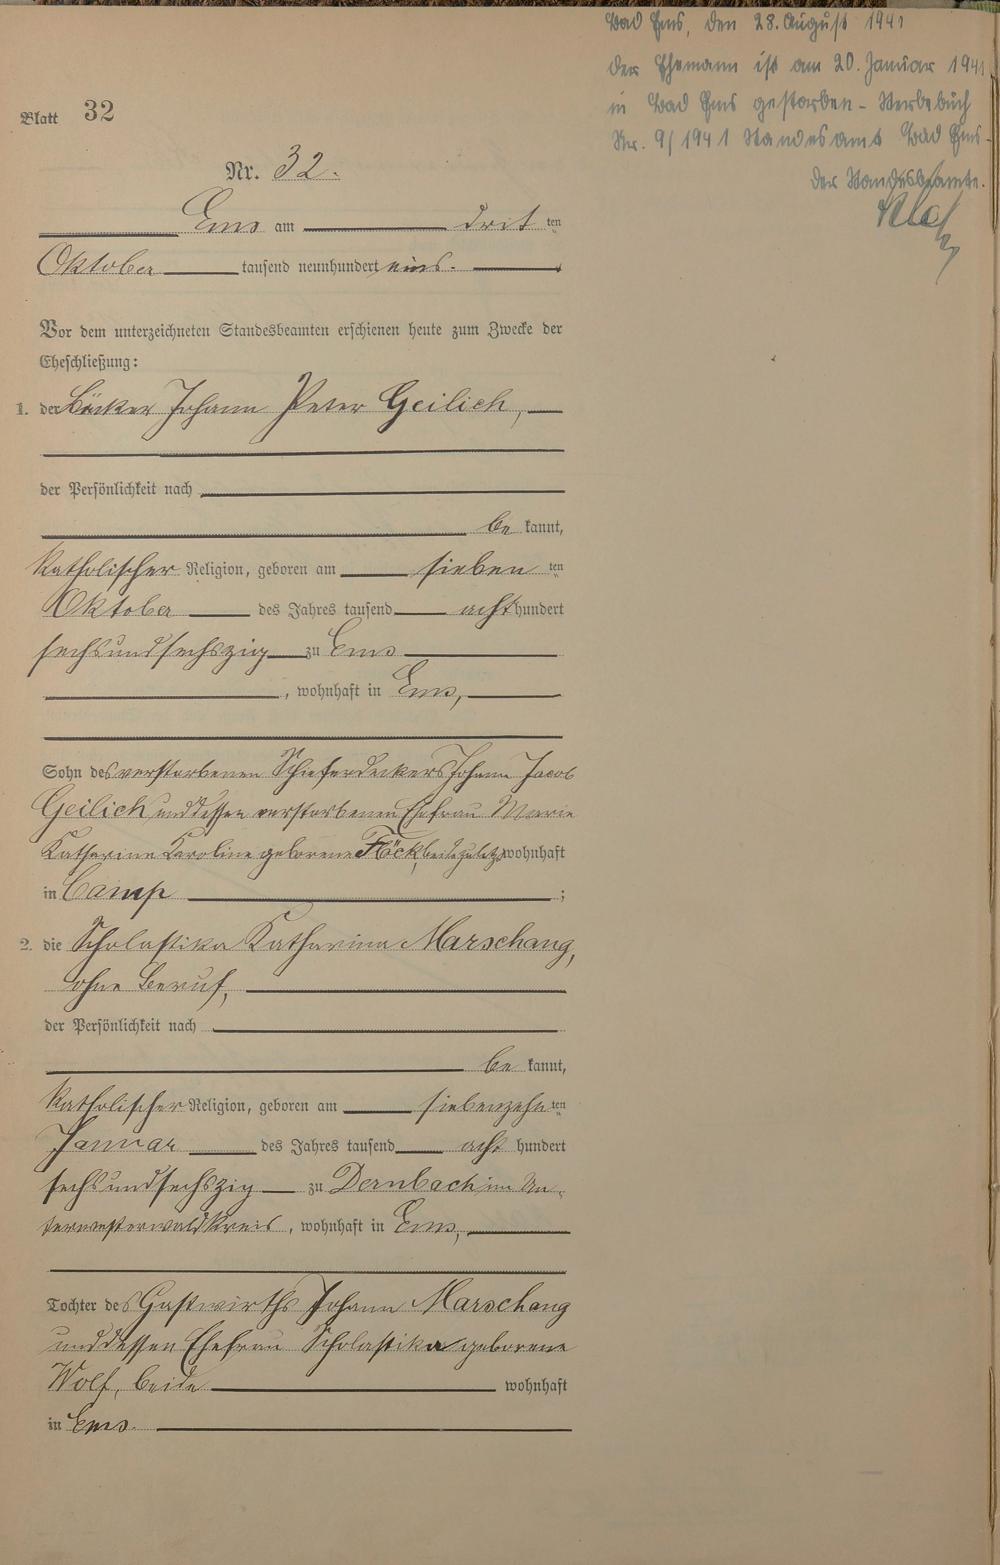 Bad Ems, den 28. August 1941
der Ehemann ist am 20. Januar 1941
in Bad Ems gestorben - Sterbebuch
Nr. 9/1941 Standesamt Bad Ems -
der Standesbeamte.
Blatt 32
Nr. 32.
Ems am dritten
Oktober tausend neunhundert eins.
Vor dem unterzeichneten Standesbeamten erschienen heute zum Zwecke der
Eheschließung:
1. der Bäcker Johann Peter Geilich,
der Persönlichkeit nach
be kannt,
katholischer Religion, geboren am sieben ten
Oktober des Jahres tausend acht hundert
sechsundsechszig zu Ems
, wohnhaft in Ems,
Sohn des verstorbenen Schieferdeckers Johann Jacob
Geilich und dessen verstorbenen Ehefrau Marie
Katharine Karoline geborene Flöck, beide zuletzt wohnhaft
in Camp ;
2. die Scholastika Katharina Marschang,
ohne Beruf,
der Persönlichkeit nach
be kannt,
katholischer Religion, geboren am siebenzehn ten
Januar des Jahres tausend acht hundert
sechsundsechszig zu Dernbach im Un-
terwesterwaldkreis, wohnhaft in Ems,
Tochter des Gastwirths Johann Marschang
und dessen Ehefrau Scholastika geborene
Wolf, beide wohnhaft
in Ems.